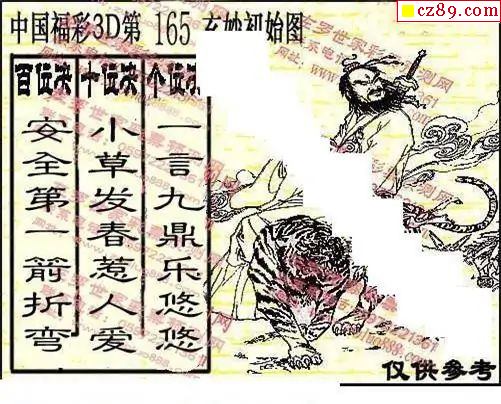 cz89.com
中国福彩3D第 165 玄妙初始图
百位决 十位决 个位决
安全第一箭折弯
小草发春惹人爱
一言九鼎乐悠悠
仅供参考